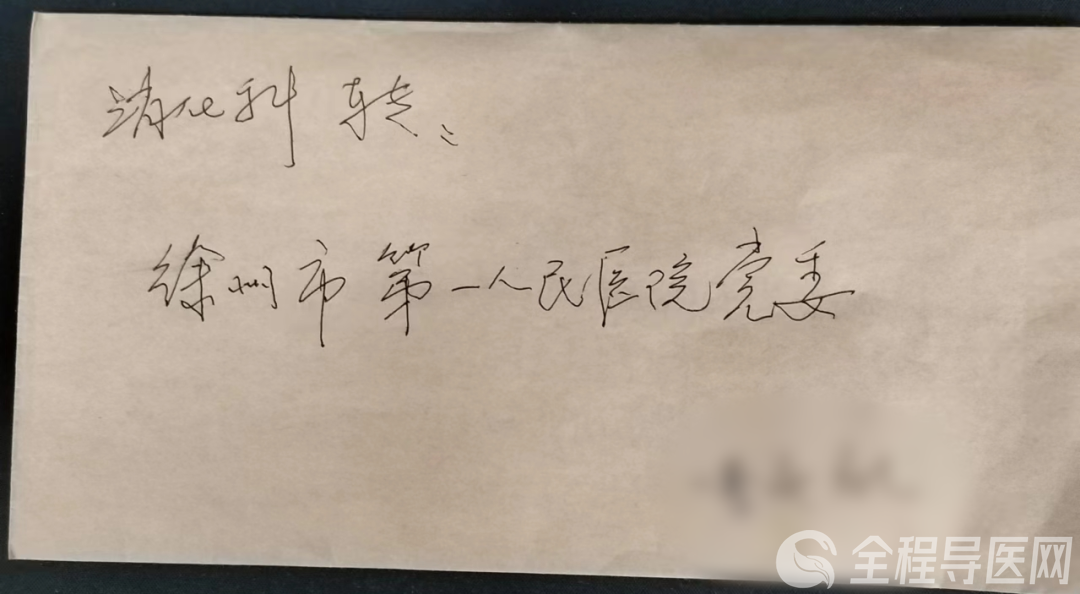 消化科 转:
徐州市第一人民医院党委
全程导医网